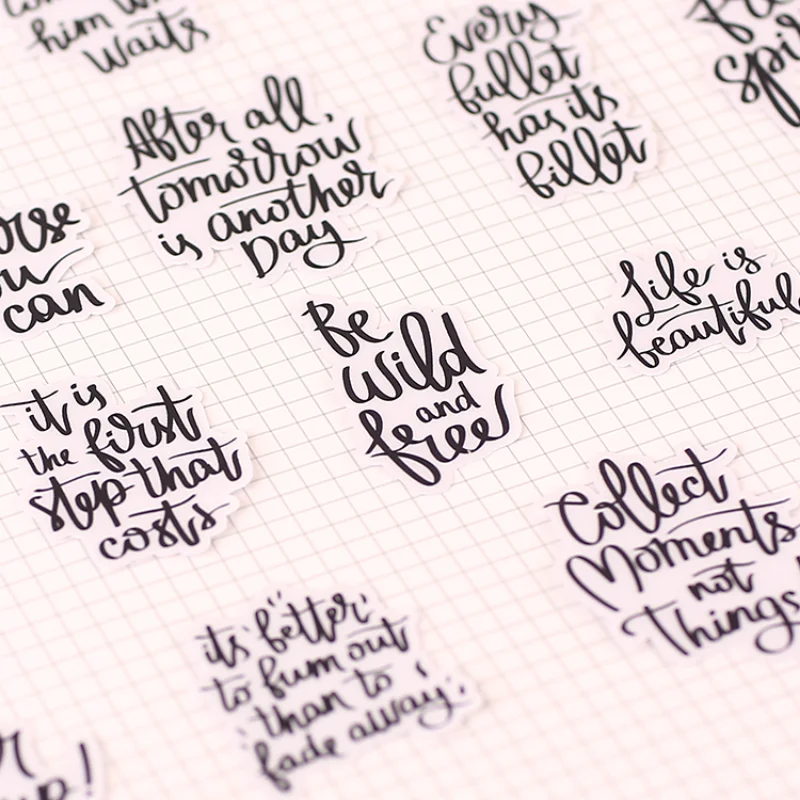 him
Waits
Every
bullet
has its
billet
After all,
tomorrow
is another
Day
can
Life is
beautiful
Be
Wild
and
free
it is
the first
step that
costs
Collect
Moments
not
Things
its better
to burn out
than to
fade away.